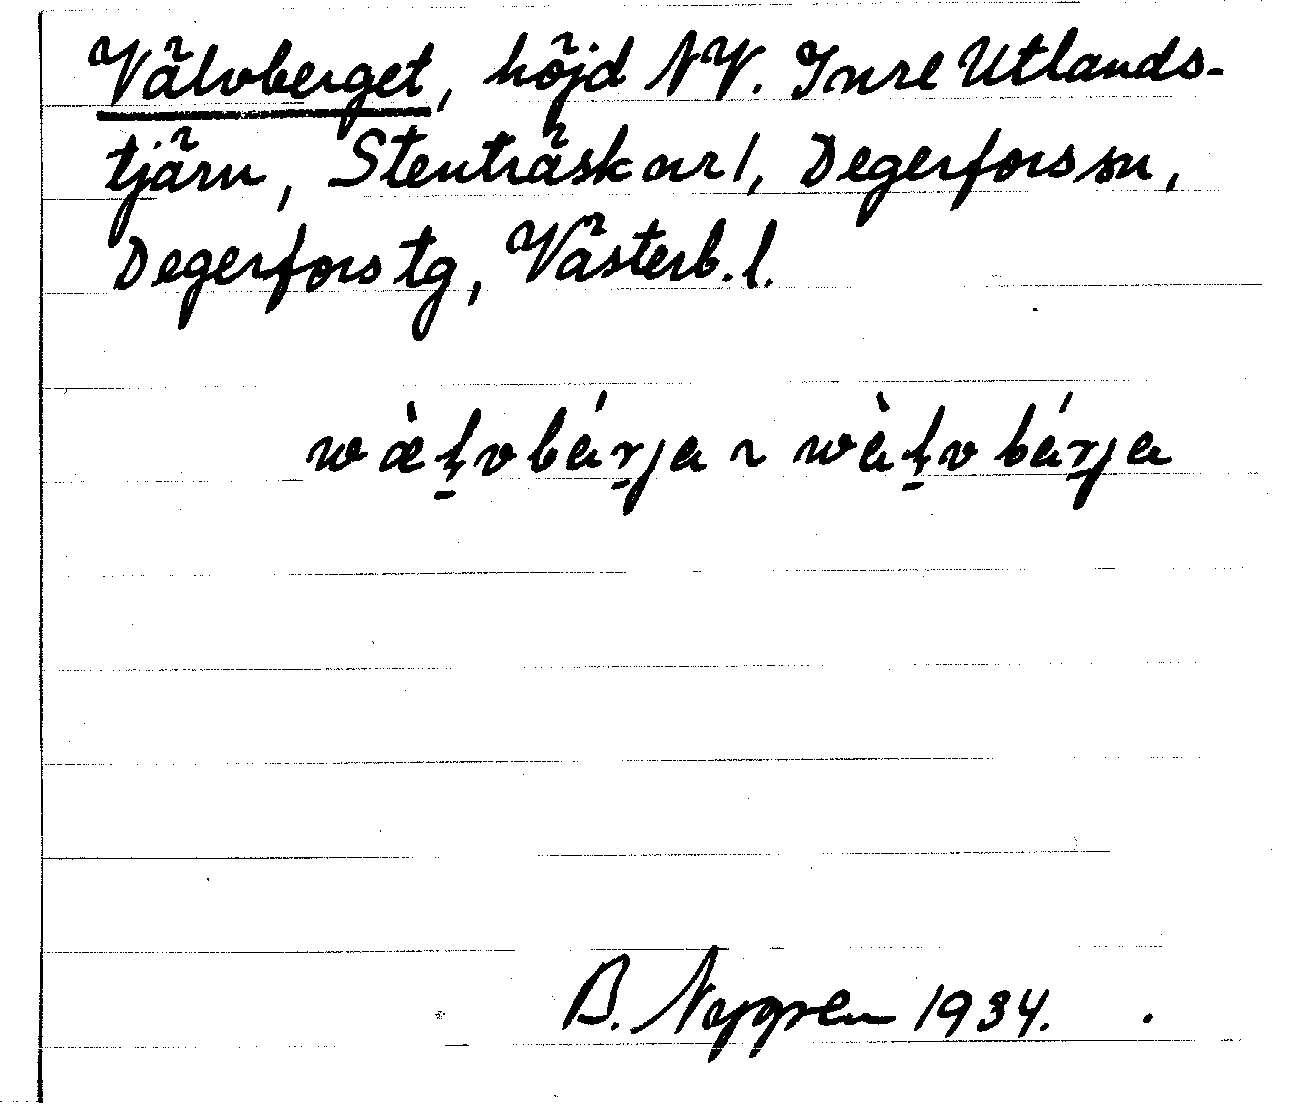 Välvberget, höjd NV. Inre Utlands-
tjärn, Stenträsk nr 1, Degerfors sn,
Degerfors tg, Västerb. l.
wæ̀ḷvbárja ~ wàḷvbárja
B. Nygren 1934.